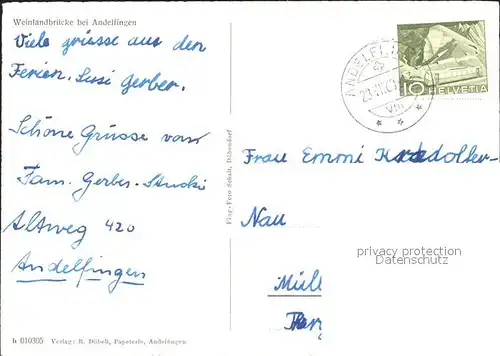 Weinlandbrücke bei Andelfingen
Viele grüsse aus den
Ferien. Susi Gerber.
Schöne Grüsse von
Fam. Gerber-Stucki
Altweg 420
Andelfingen
h 010305 Verlag: R. Dübeli, Papeterie, Andelfingen
Flug-Foto Schait, Dübendorf
ANDELFI
VIII
10 HELVETIA
Frau Emmi
Nau
privacy protection
Datenschutz
Müll